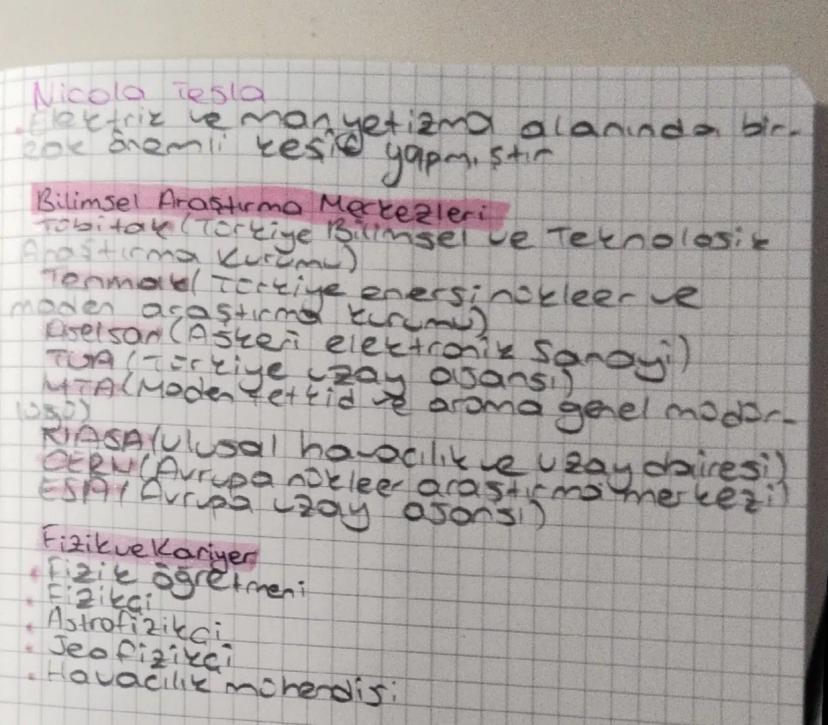 Nicola Tesla
. Elektrik ve manyetizma alanında bir-
çok önemli keşif yapmıştır
Bilimsel Araştırma Merkezleri
Tübitak (Türkiye Bilimsel ve Teknolosik
Araştırma Kurumu)
Tenmak (Türkiye enersi nükleer ve
maden araştırma kurumu)
Aselsan (Askeri elektronik Sanayi)
TUA (Türkiye uzay ajansı)
MTA (Maden tetkid ve arama genel müdür-
lüğü)
(Ulusal havacılık ve uzay dairesi)
CERN (Avrupa nükleer araştırma merkezi)
ESA (Avrupa uzay ajansı)
Fizik ve Kariyer
. Fizik öğretmeni
. Fizikçi
. Astrofizikçi
. Jeofizikçi
. Havacılık mühendisi